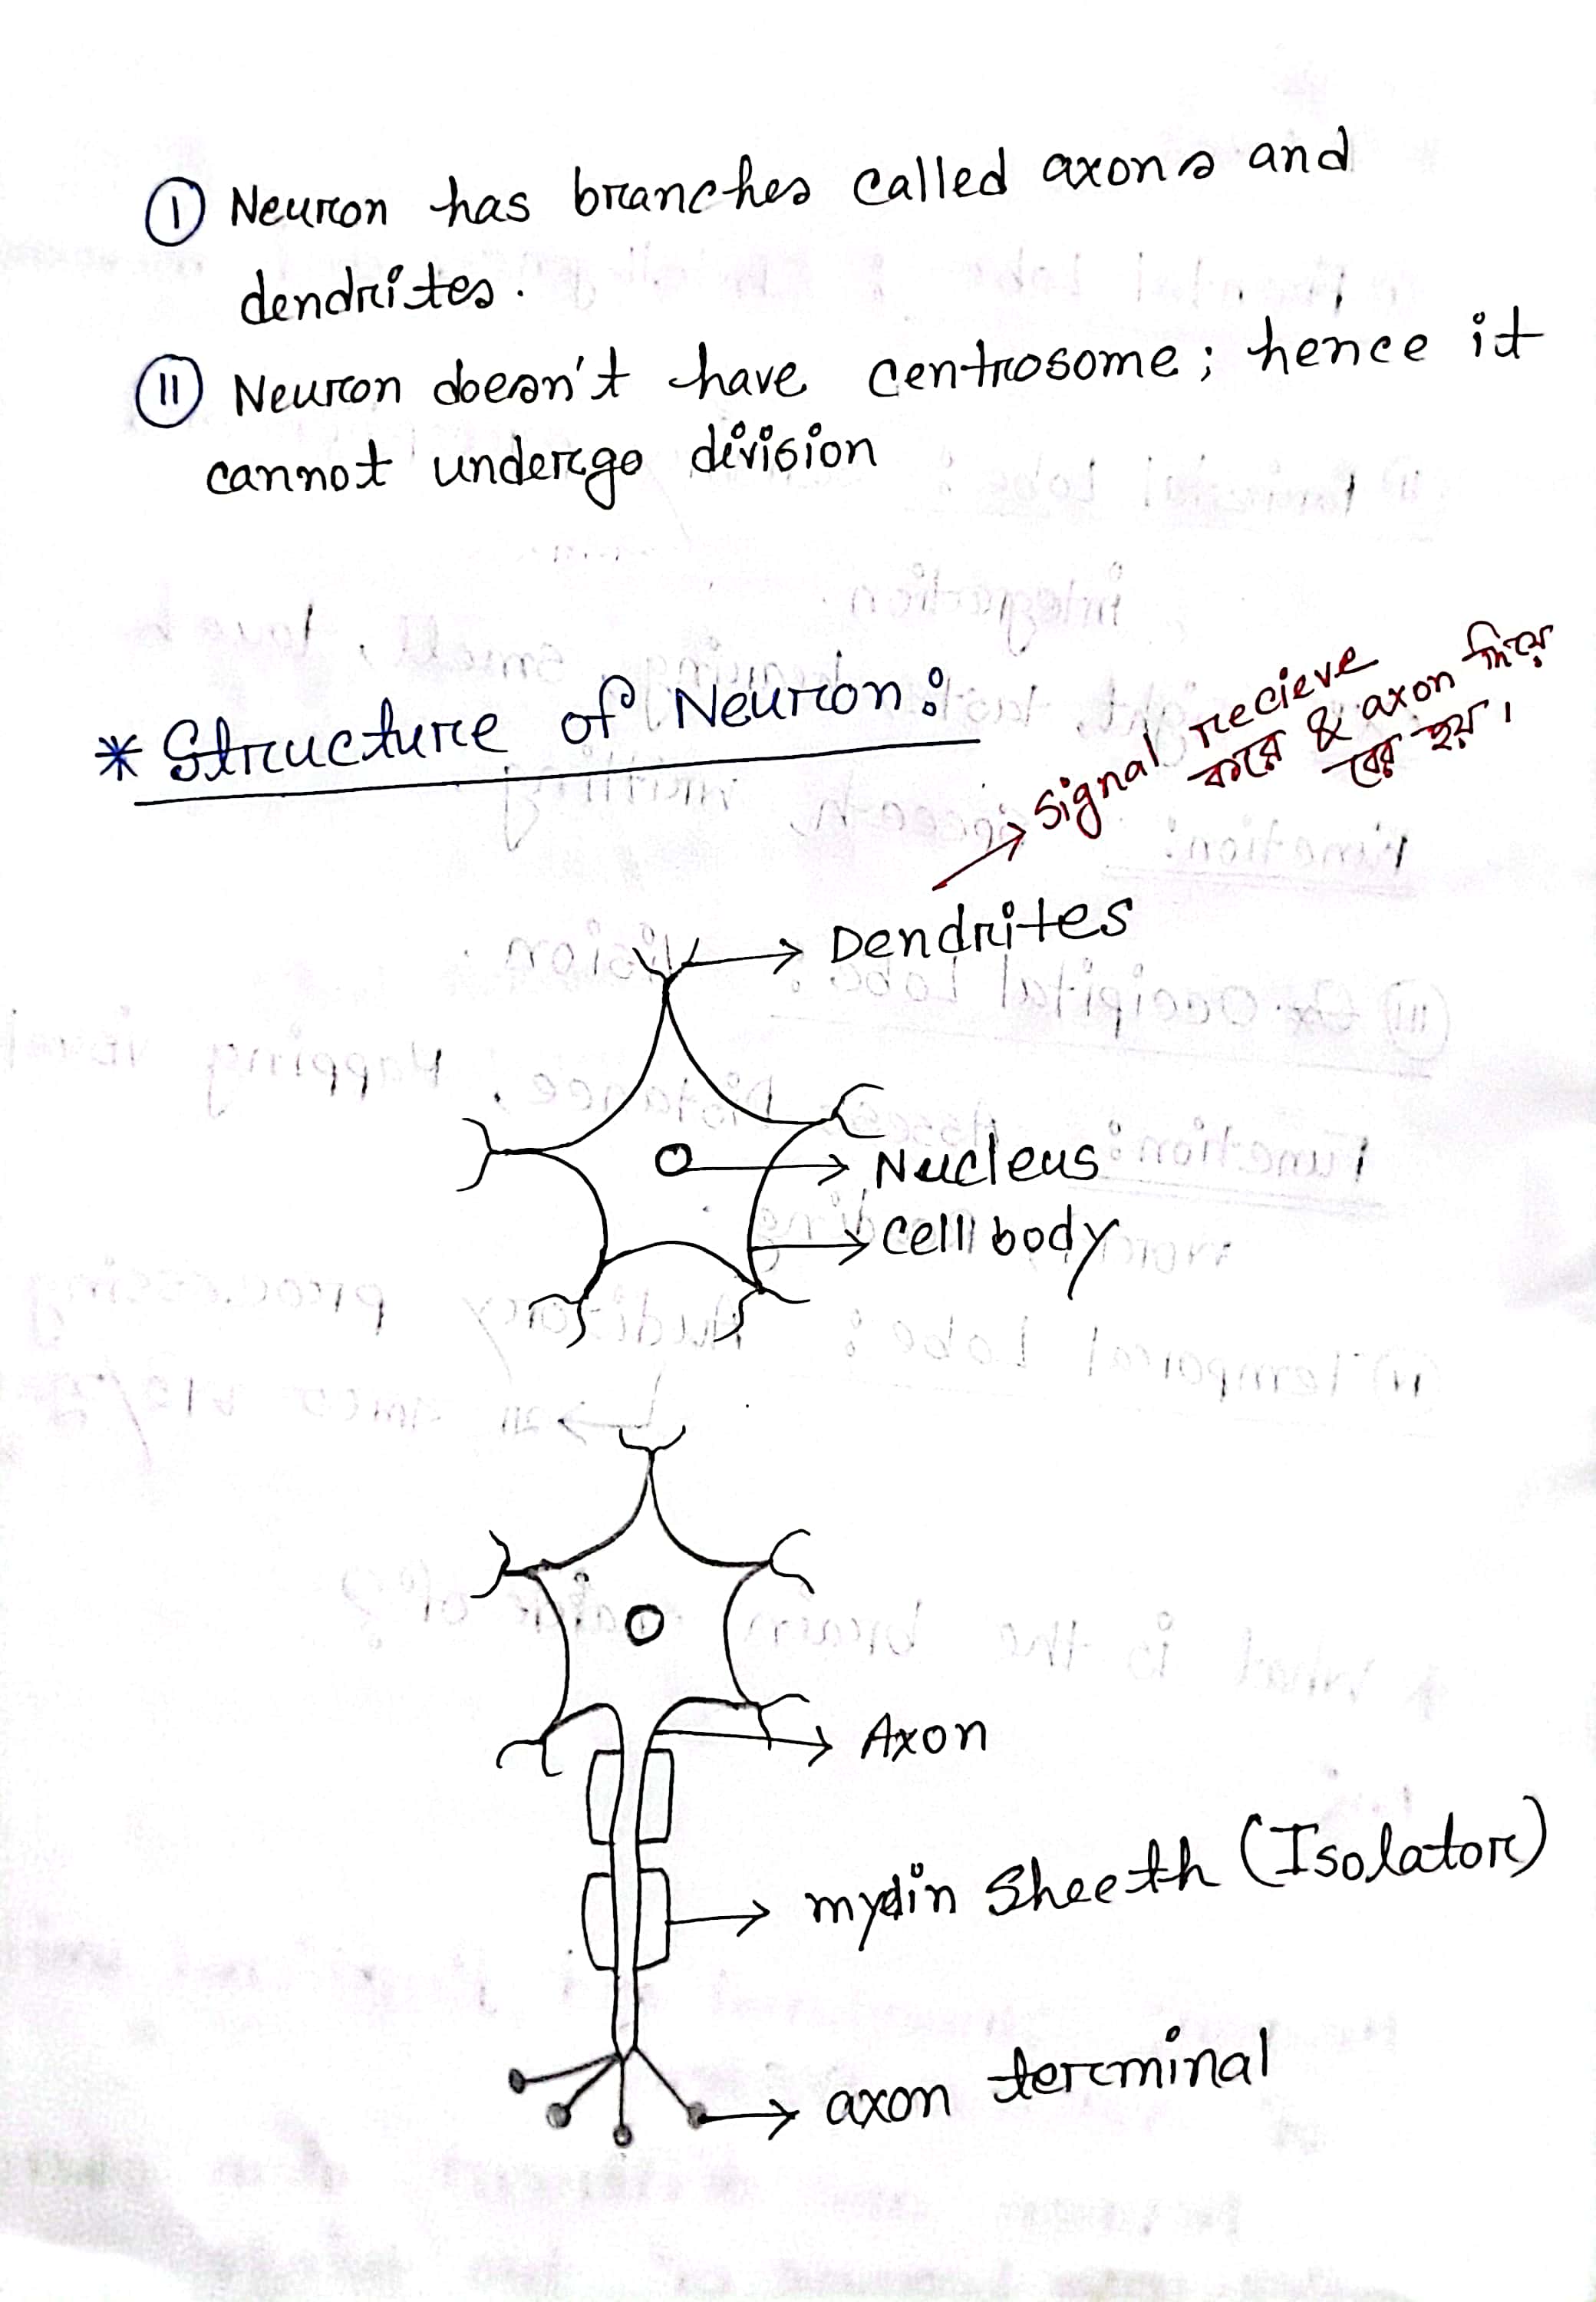 I Neuron has branches called axons and
dendrites.
II Neuron doesn't have centrosome; hence it
cannot undergo division
* Structure of Neuron:
signal recieve
করে & axon দিয়ে
বের হয়।
Dendrites
Nucleus
Cell body
Axon
myelin Sheeth (Isolator)
axon terminal